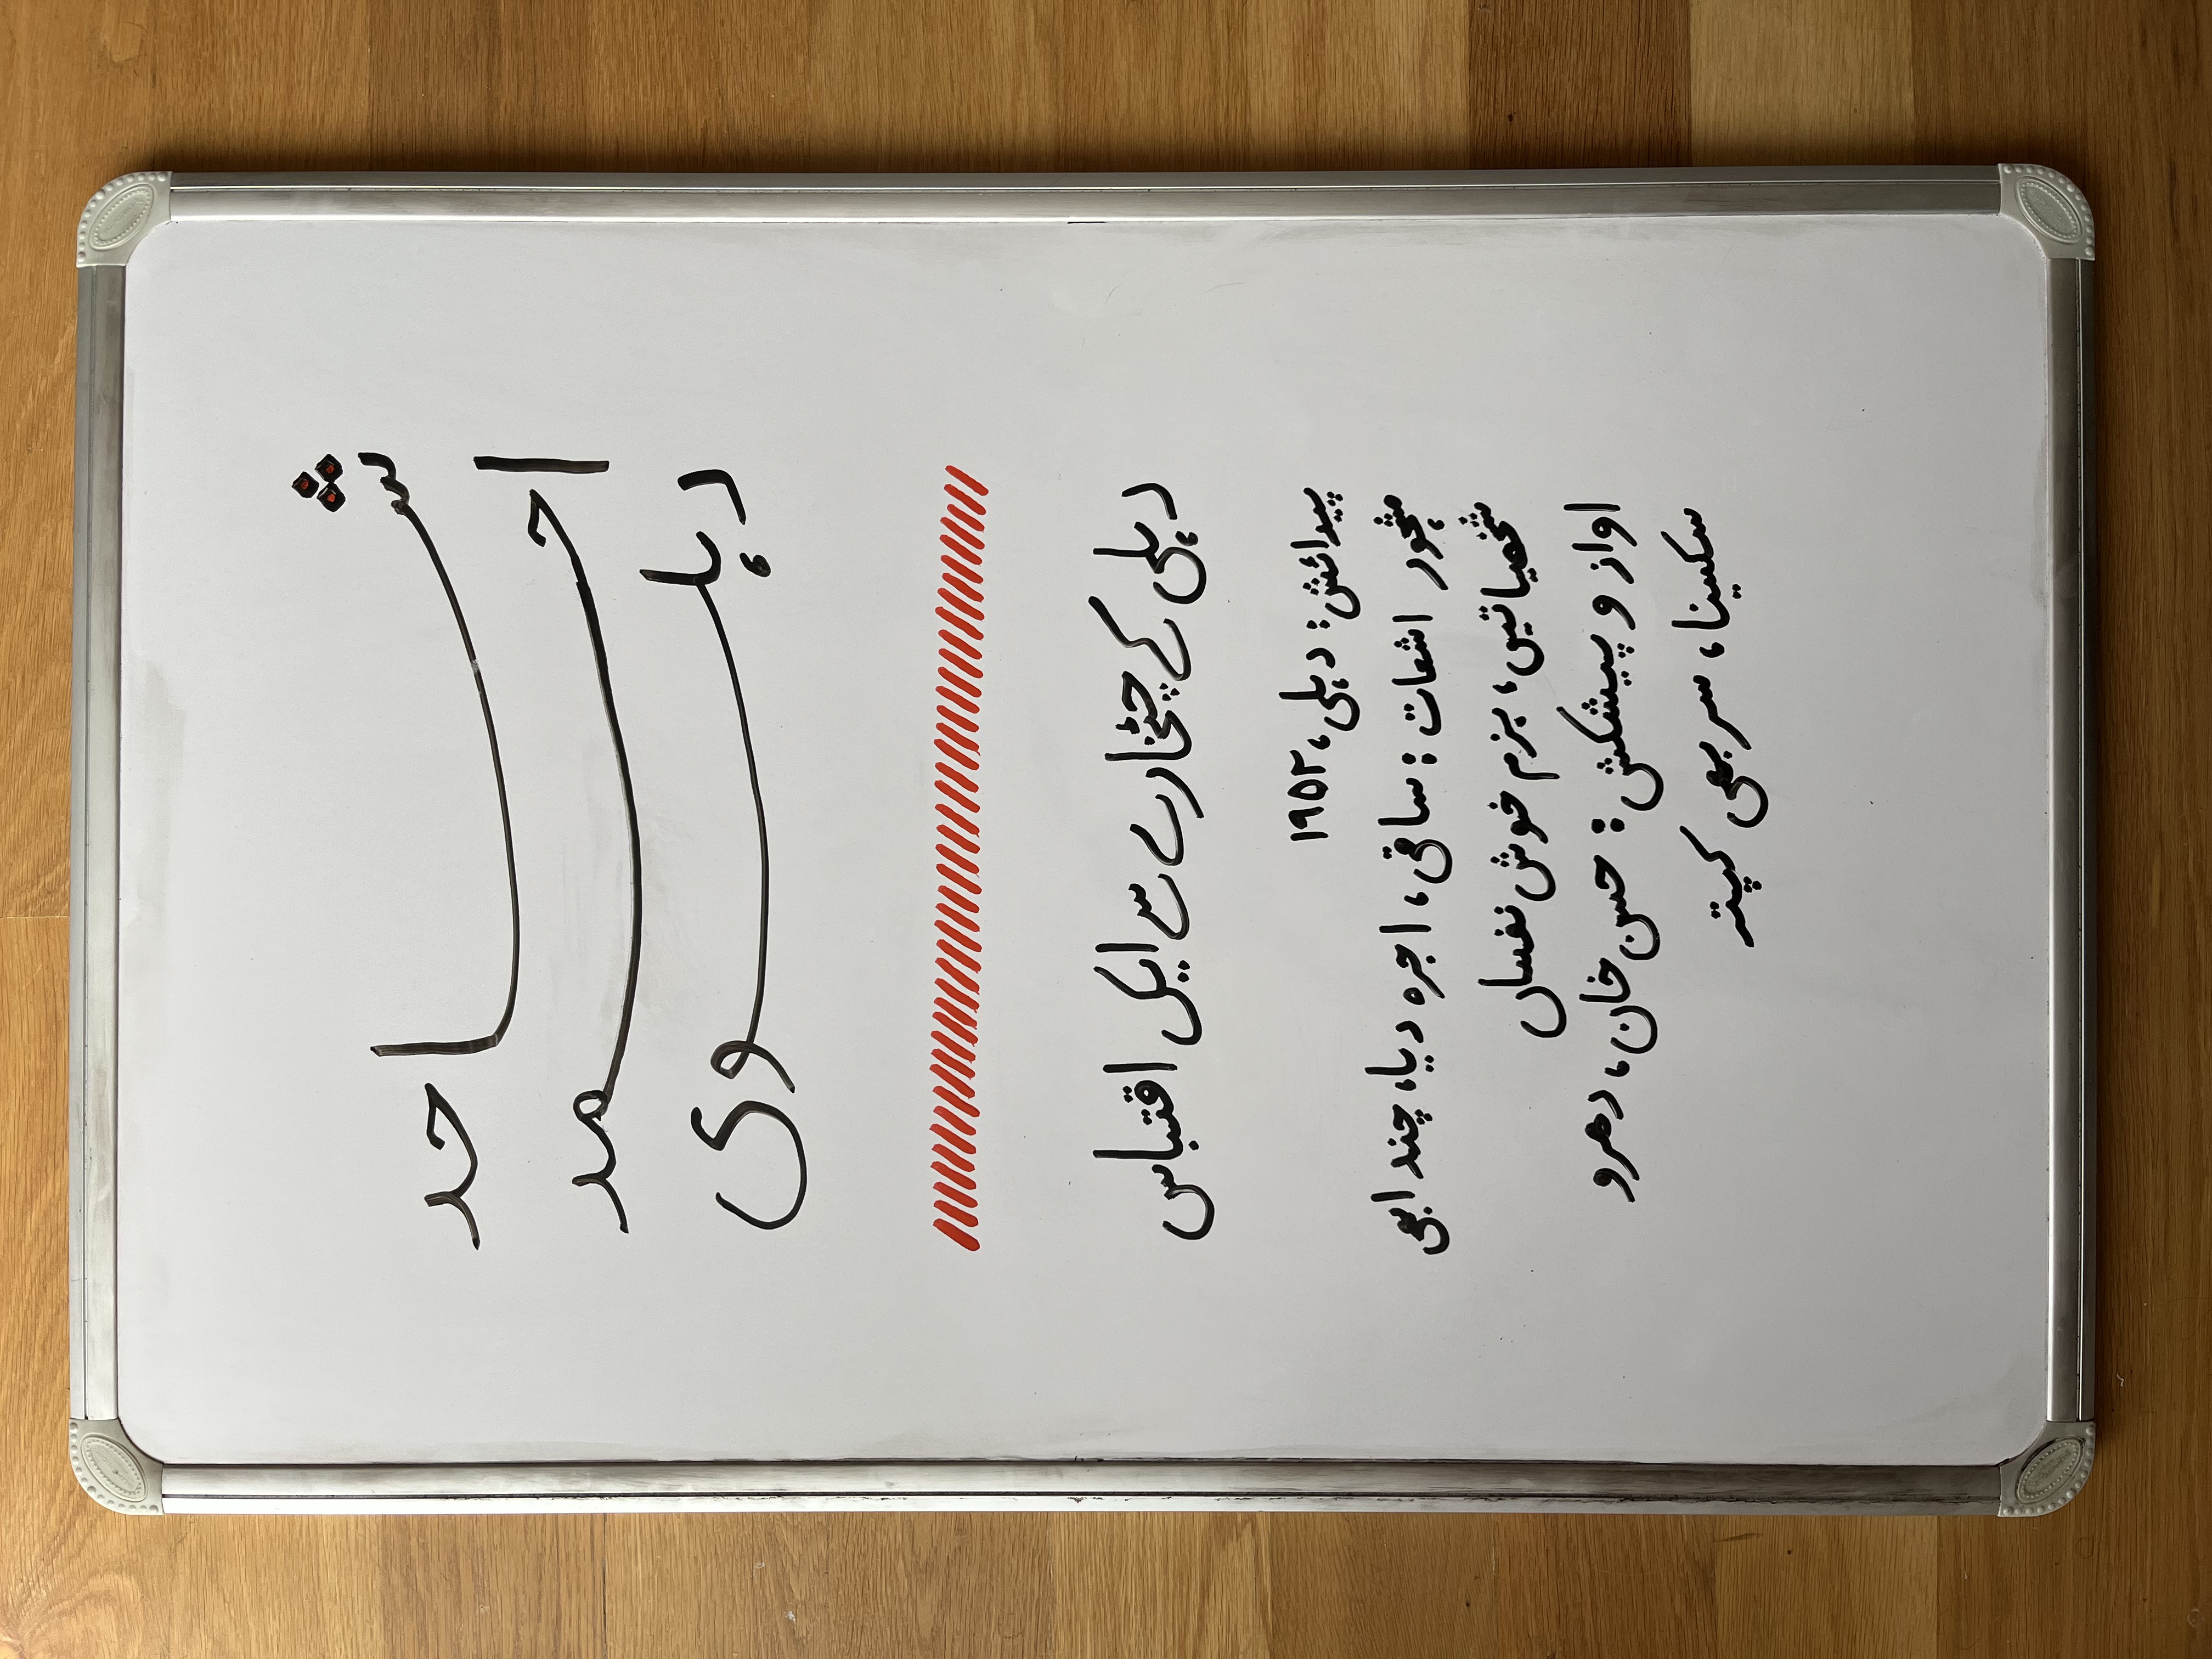 شاحد
احمد
دہلوی
دہلی کے چٹخارے سے ایک اقتباس
پیدائش: دہلی، ۱۹۵۲
مشہور اشعات: ساقی، اجرہ دیا، چند ابھی
شخصیاتیں، بزم خوش نفساں
اواز و پیشکش: حسن خان، دھرو
سکسینا، سربھی کپتہ